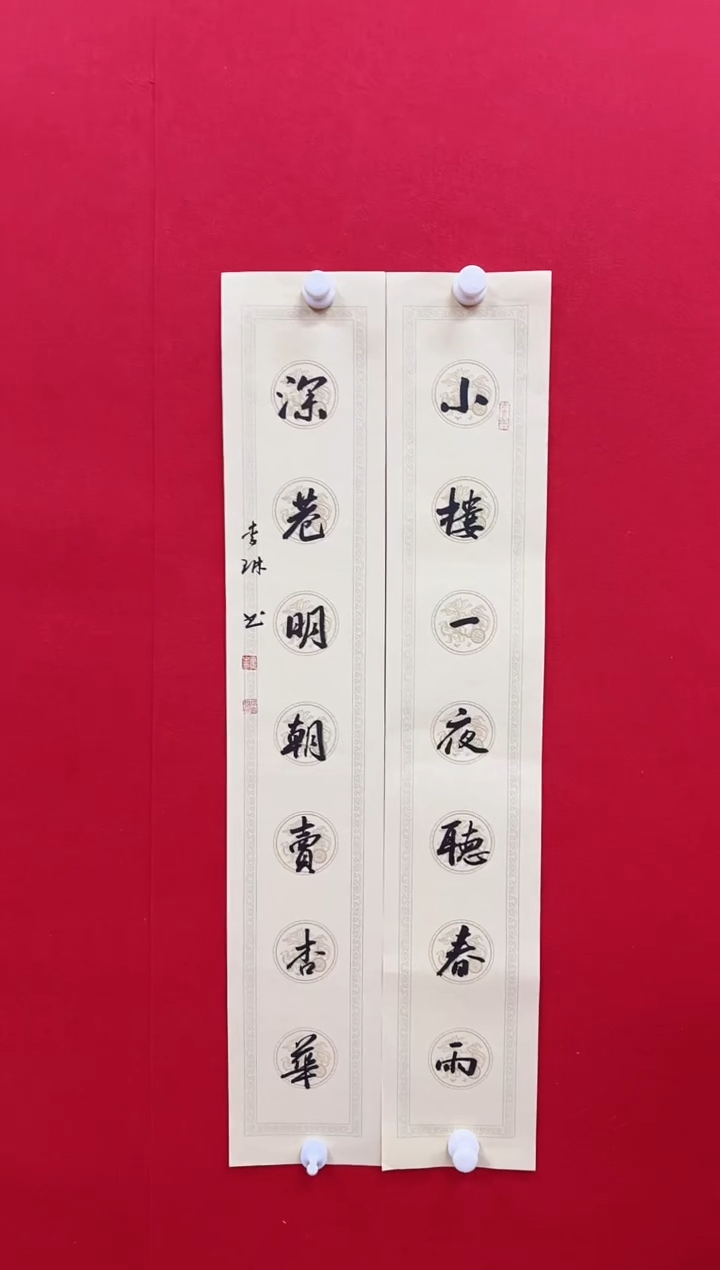 小樓一夜聽春雨
深巷明朝賣杏華
李琳 书